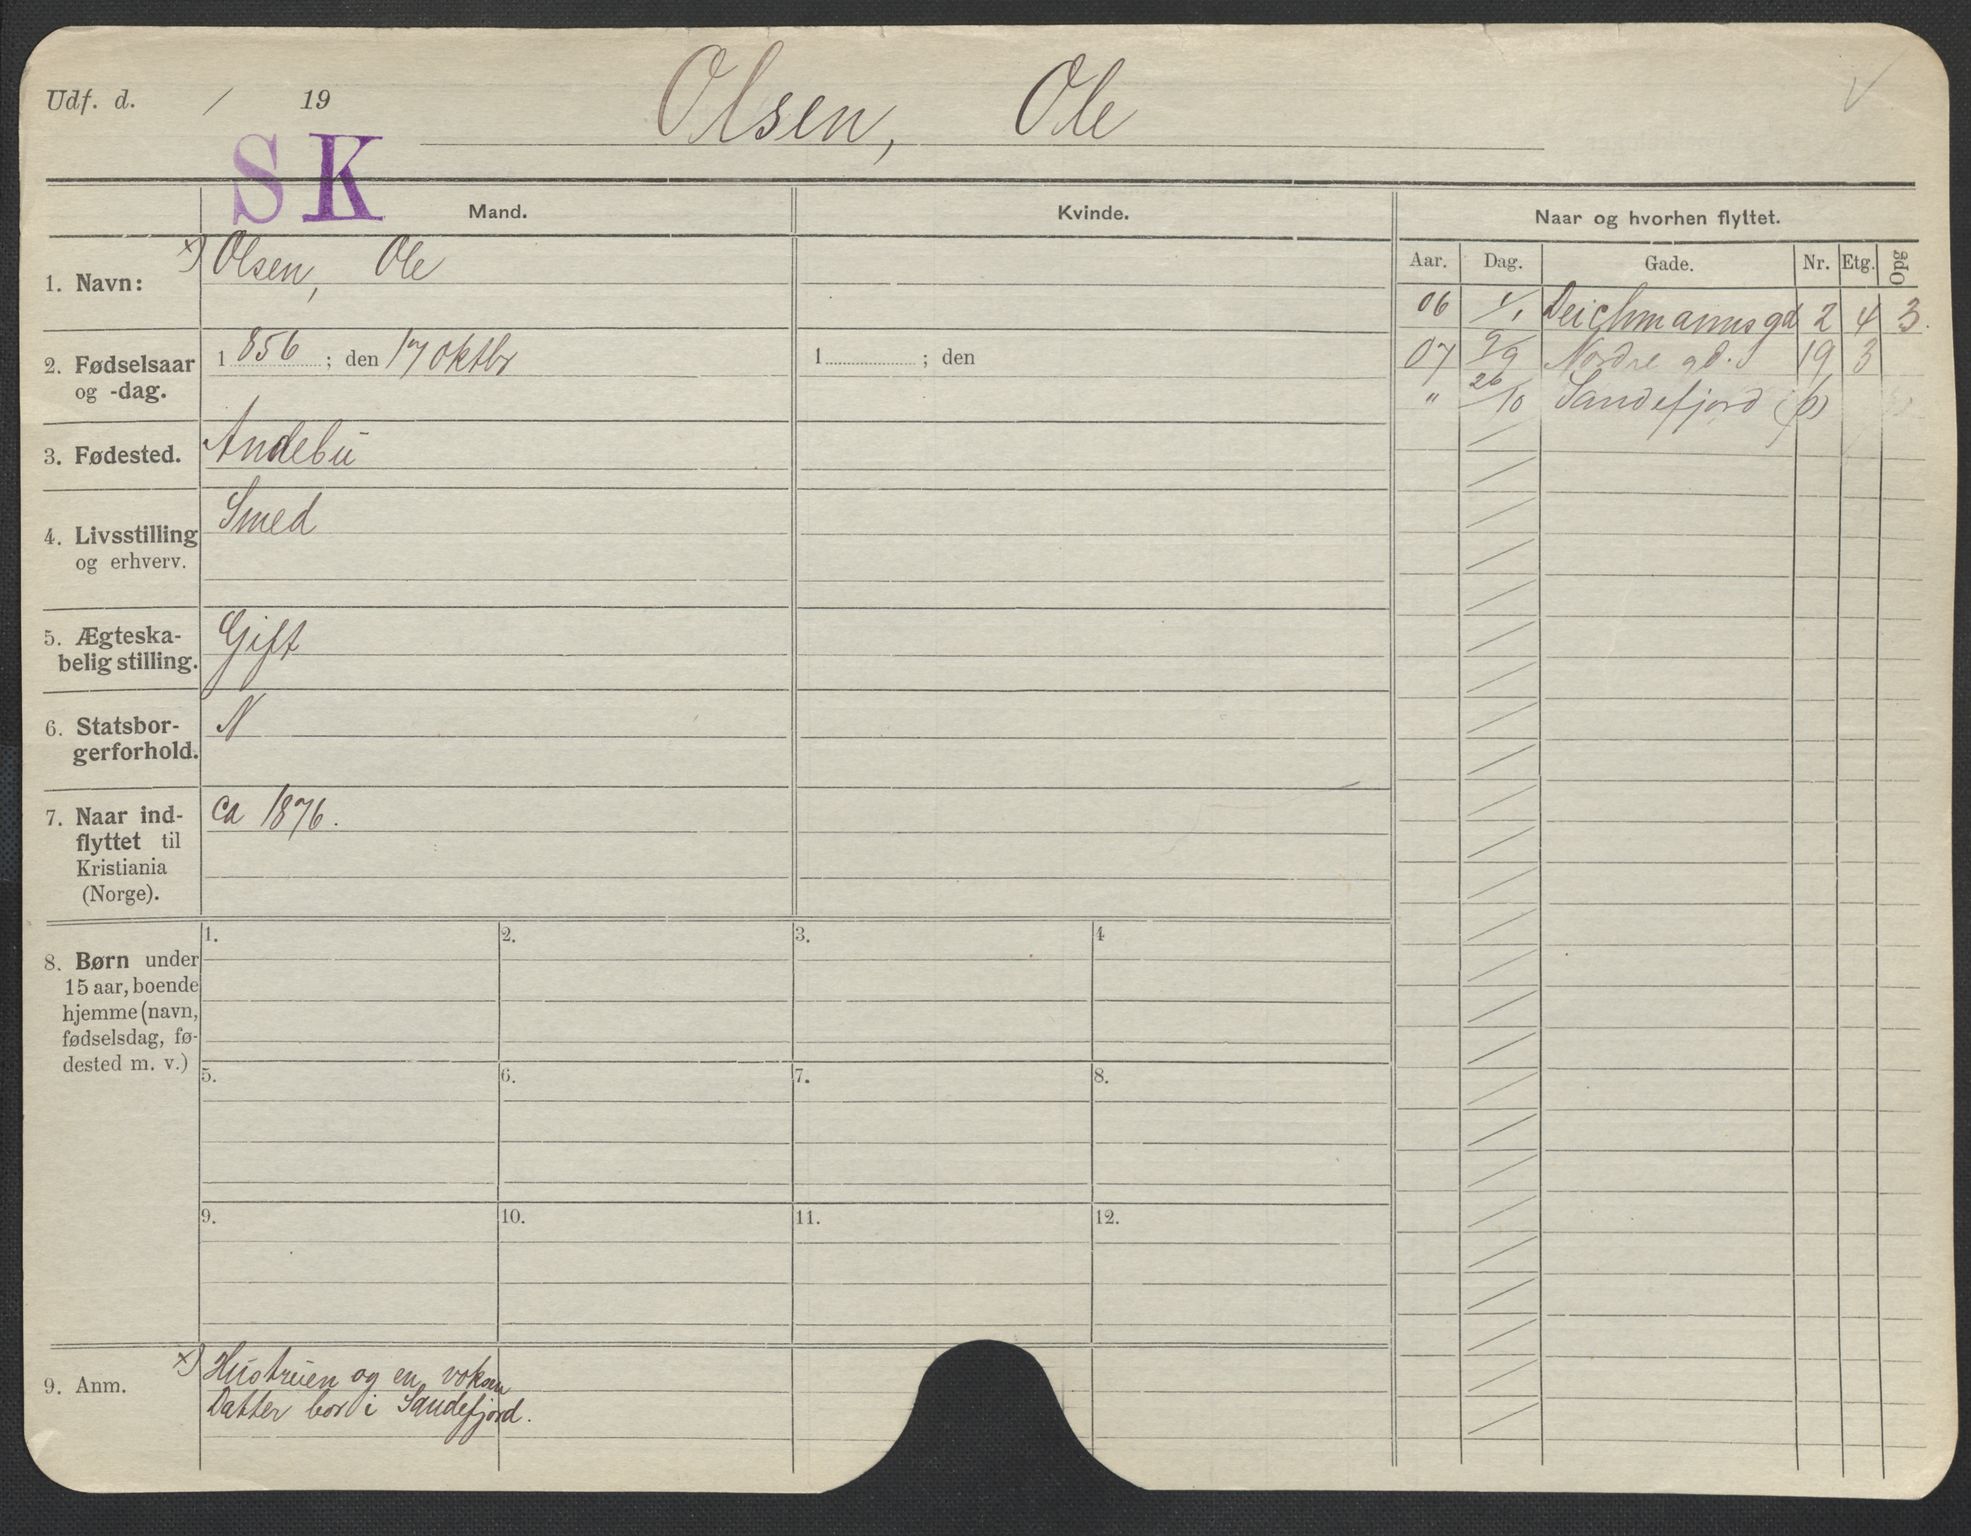 Udf. d. / 19
Olsen, Ole
SK
Mand.
Kvinde.
Naar og hvorhen flyttet.
Aar. Dag. Gade. Nr. Etg. Opg
1. Navn: x) Olsen, Ole
2. Fødselsaar og -dag. 1856 ; den 17 oktbr
1 ; den
3. Fødested. Andebu
4. Livsstilling og erhverv. Smed
5. Ægteska-
belig stilling. Gift
6. Statsbor-
gerforhold. N
7. Naar ind-
flyttet til
Kristiania
(Norge). ca 1876.
06 1/1 Deichmannsgd 2 4 3.
07 9/9 Nordre gd. 19 3
" 26/10 Sandefjord (p)
8. Børn under
15 aar, boende
hjemme (navn,
fødselsdag, fø-
dested m. v.)
1. 2. 3. 4
5. 6. 7. 8.
9. 10. 11. 12.
9. Anm. x) Hustruen og en voksen
Datter bor i Sandefjord.